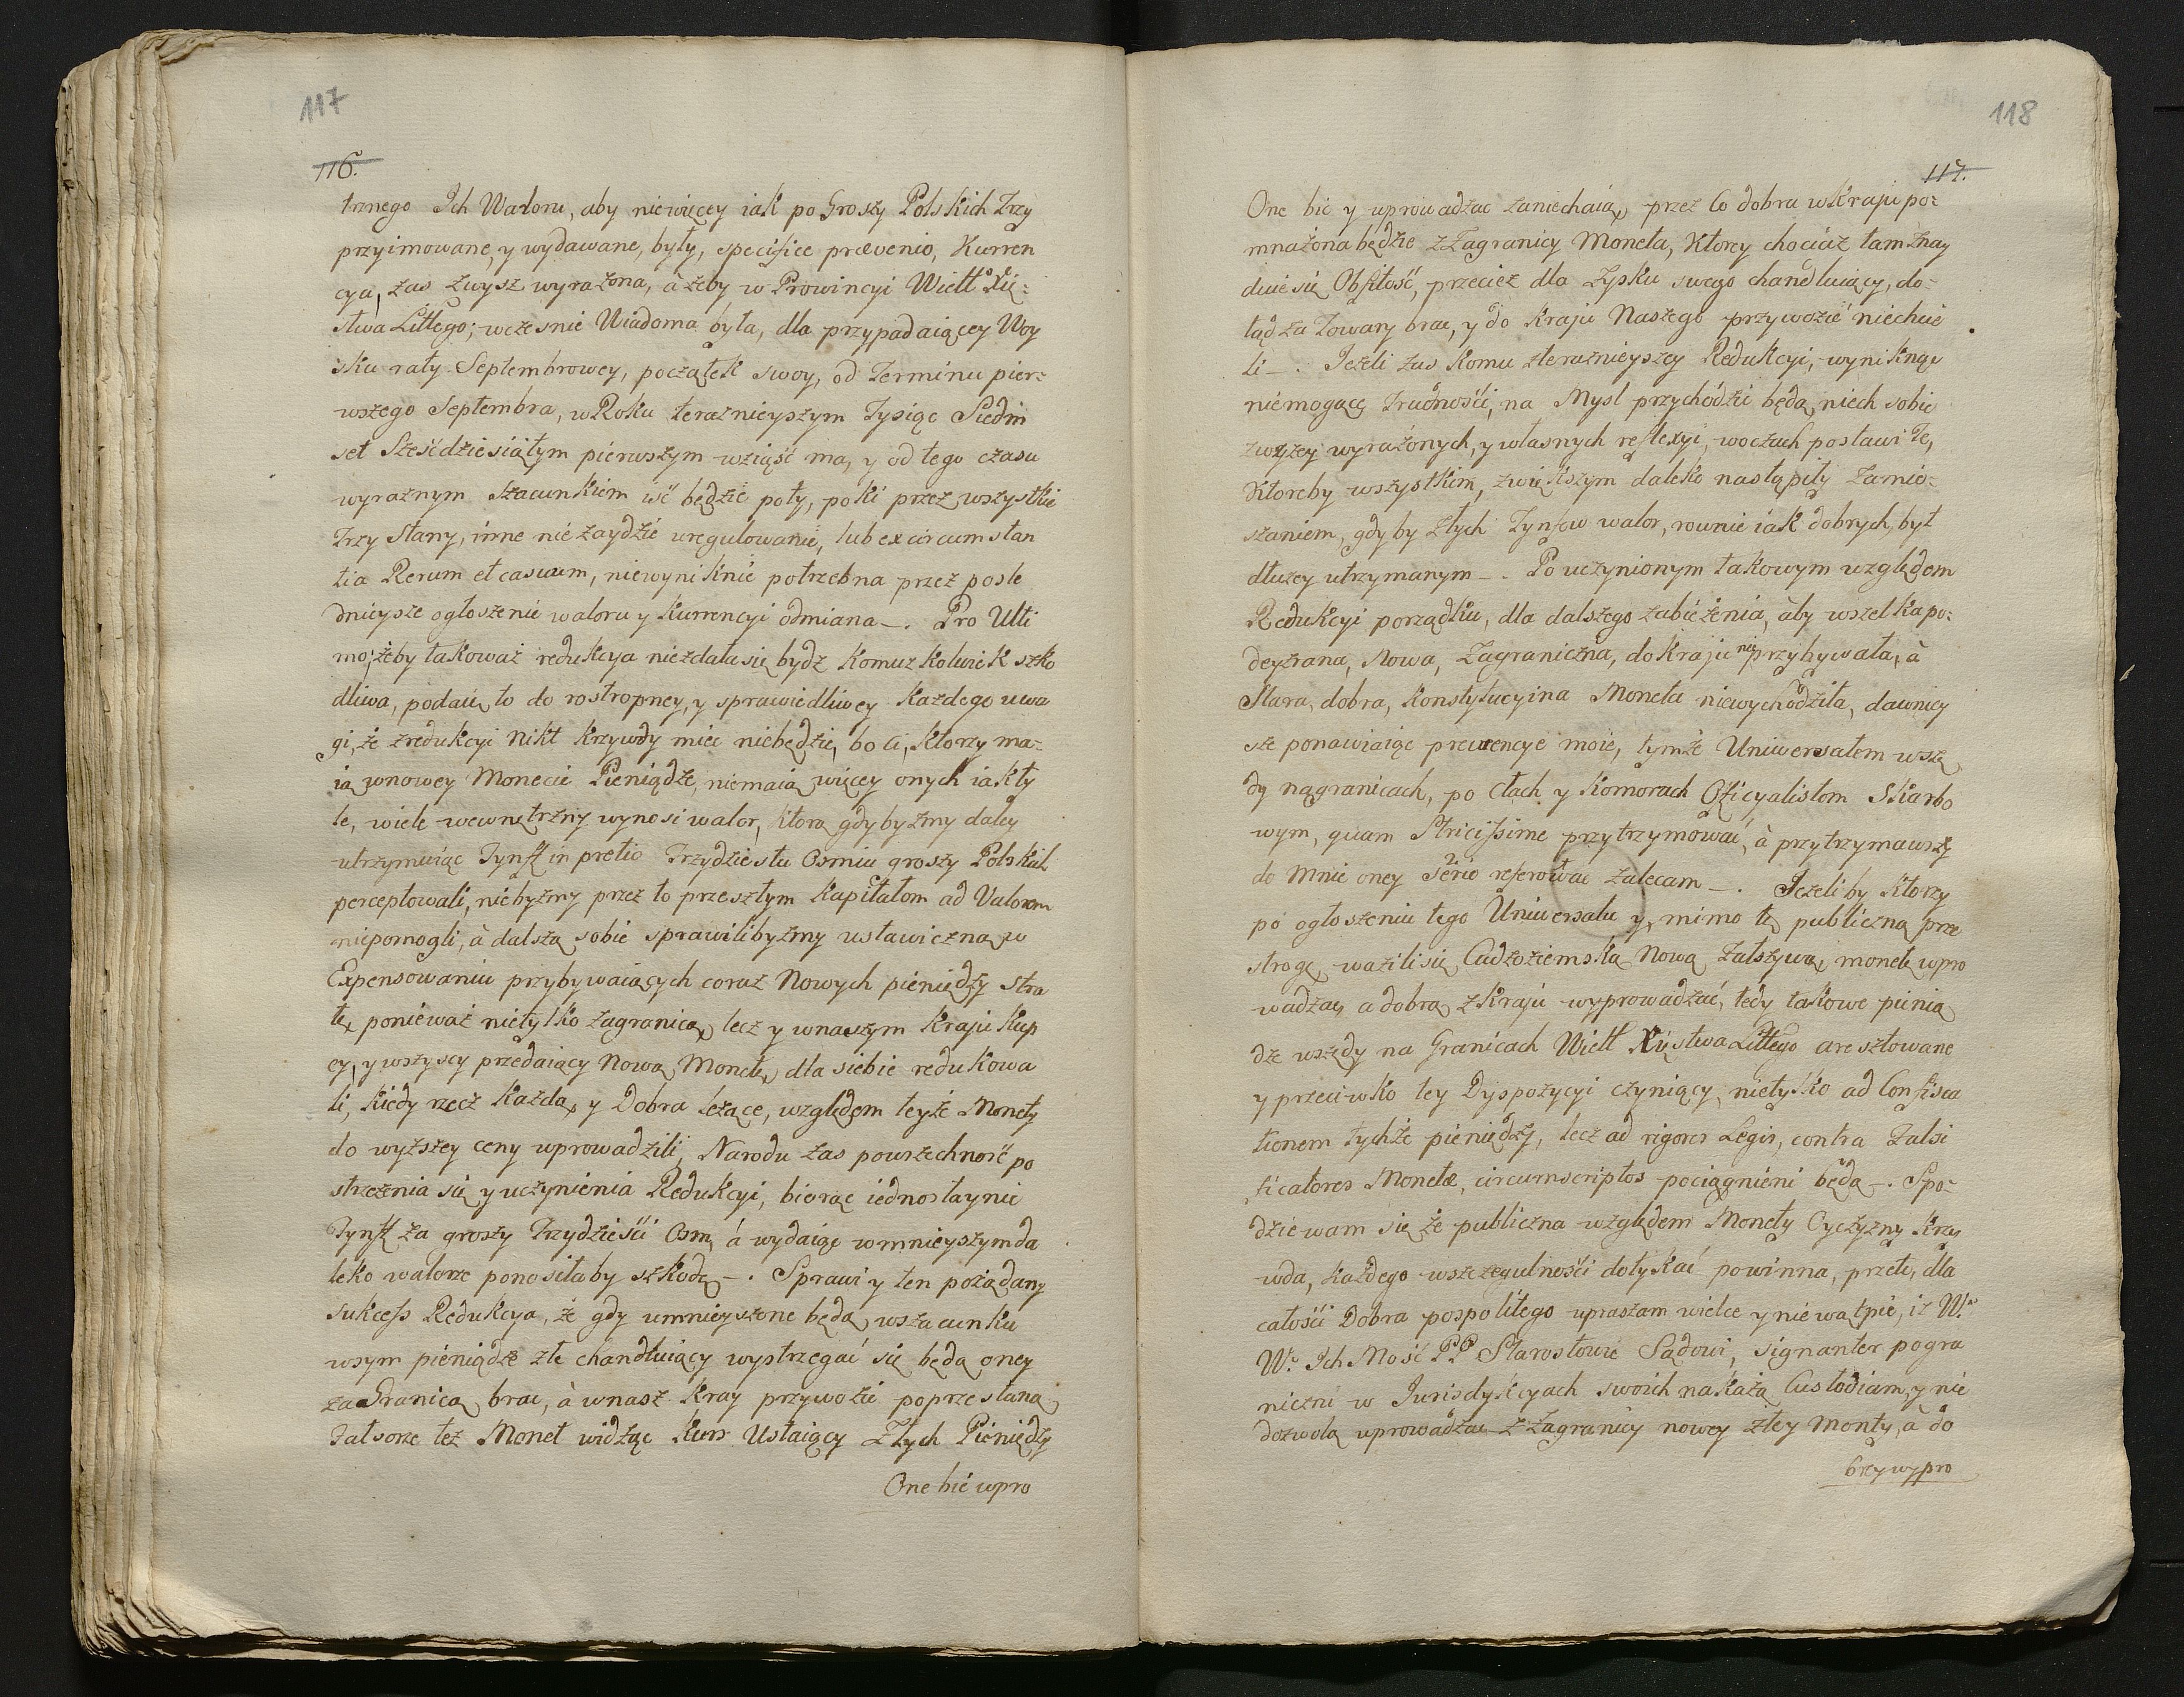 117
116.
trznego Ich Waloru, aby niewięcey iak po Groszy Polskich Trzy
przyimowane, y wydawane, były, specifice prævenio, Kurren
cya, zas zwysz wyrazona, à żeby w Prowincyi Wielł Xię:
stwa Littego; wczesnie Wiadoma była, dla przypadaiącey Woy
sku raty Septembrowey, początek swoy, od Terminu pier:
wszego Septembra, w Roku teraznieyszym Tysiąc Siedm
set Sześćdziesiątym pierwszym wziąść ma, y od tego czasu
wyraznym szacunkiem iść będzie poty, poki przez wszystkie
Trzy Stany, inne nie zaydzie uregulowanie, lub ex circumstan
tia Rerum et casuum, niewyniknie potrzebna przez posle
dnieysze ogłoszenie waloru y Kurrencyi odmiana _. Pro Ulti
mo; żeby takoważ redukcya niezdała się bydz komuz kolwiek szko
dliwa, podaię to do rostropney, y sprawiedliwey Każdego uwa
gi, że z redukcyi Nikt Krzywdy miec niebędzie, bo ci, Ktorzy ma:
ią w nowey Monecie Pieniądze, niemaią więcey onych iak ty
le, wiele wewnętrzny wynosi walor, ktorą gdybyzmy daley
utrzymuiąc Tynff in pretio Trzydziestu Osmiu groszy Polskich
perceptowali, niebyzmy przez to przeszłym Kapitałom ad Valorem
niepomogli, à dalszą sobie sprawilibyzmy ustawiczną w
Expensowaniu przybywaiących coraz Nowych pieniędzy stra
tę, ponieważ nietylko zagranicą, lecz y w naszym Kraju Kup
cy, y wszyscy przedaiący Nową Monetę, dla siebie redukowa
li, kiedy rzecz Kazdą, y Dobra lezące, względem teyże Monety
do wyzszey ceny uprowadzili, Narodu zas powszechność po
strzeżenia się y uczynienia Redukcyi, biorąc iednostaynie
Tynff za groszy Trzydzieści Osm, á wydaiąc w mnieyszym da
leko walorze ponosiłaby szkodę _. Sprawi y ten poządany
sukcess Redukcya, że gdy umnieyszone będą w szacunku
wsym pieniądze złe chandluiący wystrzegać się będą oney
za Granicą brac, à w nasz Kray przywozic poprzestaną
Falsorze tez Monet widząc Kurs Ustaiący Złych Pieniędzy
One bić wpro
118
117.
One bic y uprowadzac zaniechaią, przez Co dobra w Kraju po:
mnażona będzie z Zagranicy Moneta, Ktorey chociaż tam znay
duie się Obfitość, przeciez dla Zysku swego chandluiący, do-
tąd za Towary brac, y do Kraju Naszego przywozić niechcie
li _. Jeżeli zas Komu z teraznieyszey Redukcyi, wyniknąc
niemogące Trudności, na Mysl przychodzić będą, niech sobie
zwyzey wyrażonych, y własnych reflexyi, w oczach postawi Te,
Ktoreby wszystkim, z większym daleko nastąpiły Zamie:
szaniem, gdyby złych Tynfow walor, rownie iak dobrych, był
dłuzey utrzymanym _. Po uczynionym takowym względem
Redukcyi porządku, dla dalszego zabieżenia, àby wszelka po:
deyzrana, Nowa, Zagraniczna, do Kraju nie przybywała, à
Stara, dobra, Konstytucyina Moneta niewychodziła, dawniey
sze ponawiaiąc prewencye moie, tymże Uniwersałem wszę
dy na granicach, po Cłach y Komorach Oficyalistom Skarbo
wym, quam Stricissime przytrzymować, à przytrzymawszy
do Mnie oney serio referować zalecam _. Jeżeliby Ktorzy
po ogłoszeniu tego Uniwersału y, mimo tę publiczną prze
strogę, wazili się Cudzoziemską Nową Fałszywą monetę wpro
wadzac, a dobrą z Kraju wyprowadzać, tedy takowe pienią
dze wszędy na Granicach Wielł Xięstwa Littego aresztowane
y przeciwko tey Dyspozycyi czyniący, nietylko ad Confisca
tionem tychże pieniędzy, lecz ad rigores Legis, contra Falsi
ficatores Monetæ, circumscriptos pociągnieni będą _. Spo-
dziewam się że publiczna względem Monety Oyczyzny Krzy
wda, każdego w szczegulności dotykać powinna, przeto, dla
całości Dobra pospolitego upraszam wielce y niewątpię, iz W.
W. Ich Mość P.P. Starostowie Sądowi, signanter pogra
niczni w Jurisdykcyach swoich nakażą Custodiam, y nie
dozwolą uprowadzac z Zagranicy nowey złey Monty, à do
brey wypro